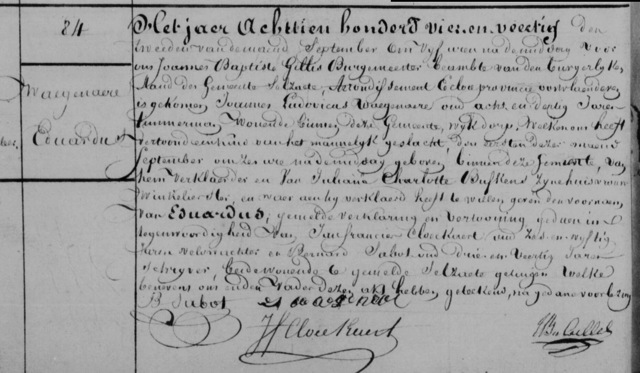 84
Waegenaere
Eduardus
Het jaer Achttien hondert vier en veertig den
tweeden van de maend September om vyf uren na de middag voor
ons Joannes Baptiste Gillis Burgemeester Beambte van den Burgerlyken
Stand der Gemeente Selzaete, Arrondissement Eecloo provincie oostvlaenderen
is gekomen Joannes Ludovicus Waegenaere oud acht en dertig Jaren
timmerman Wonende binnen deze Gemeente, wyk dorp. Welken ons heeft
vertoond een kind van het mannelyk geslacht, den eersten dezer maend
September om zes ure na de middag geboren, binnen deze Gemeente, van
hem Verklaerder en Van Juliana Charlotte Buskens Zyne huisvrouw
Winkelierster, en waer aen hy verklaerd heeft te willen geven den voornaem
van Eduardus, gemelde verklaring en vertooning gedaen in
tegenwoordigheid van Jan francies Cloeckaert oud Zes en vyftig
Jaren veldwachter en Bernard Sabot oud drie en Veertig Jaren
Schryver, beide wonende te gemelde Selzaete getuigen Welke
benevens ons en den Vader deze akt hebben geteekend, na gedane voorlezing
B Sabot
JF Cloeckaert